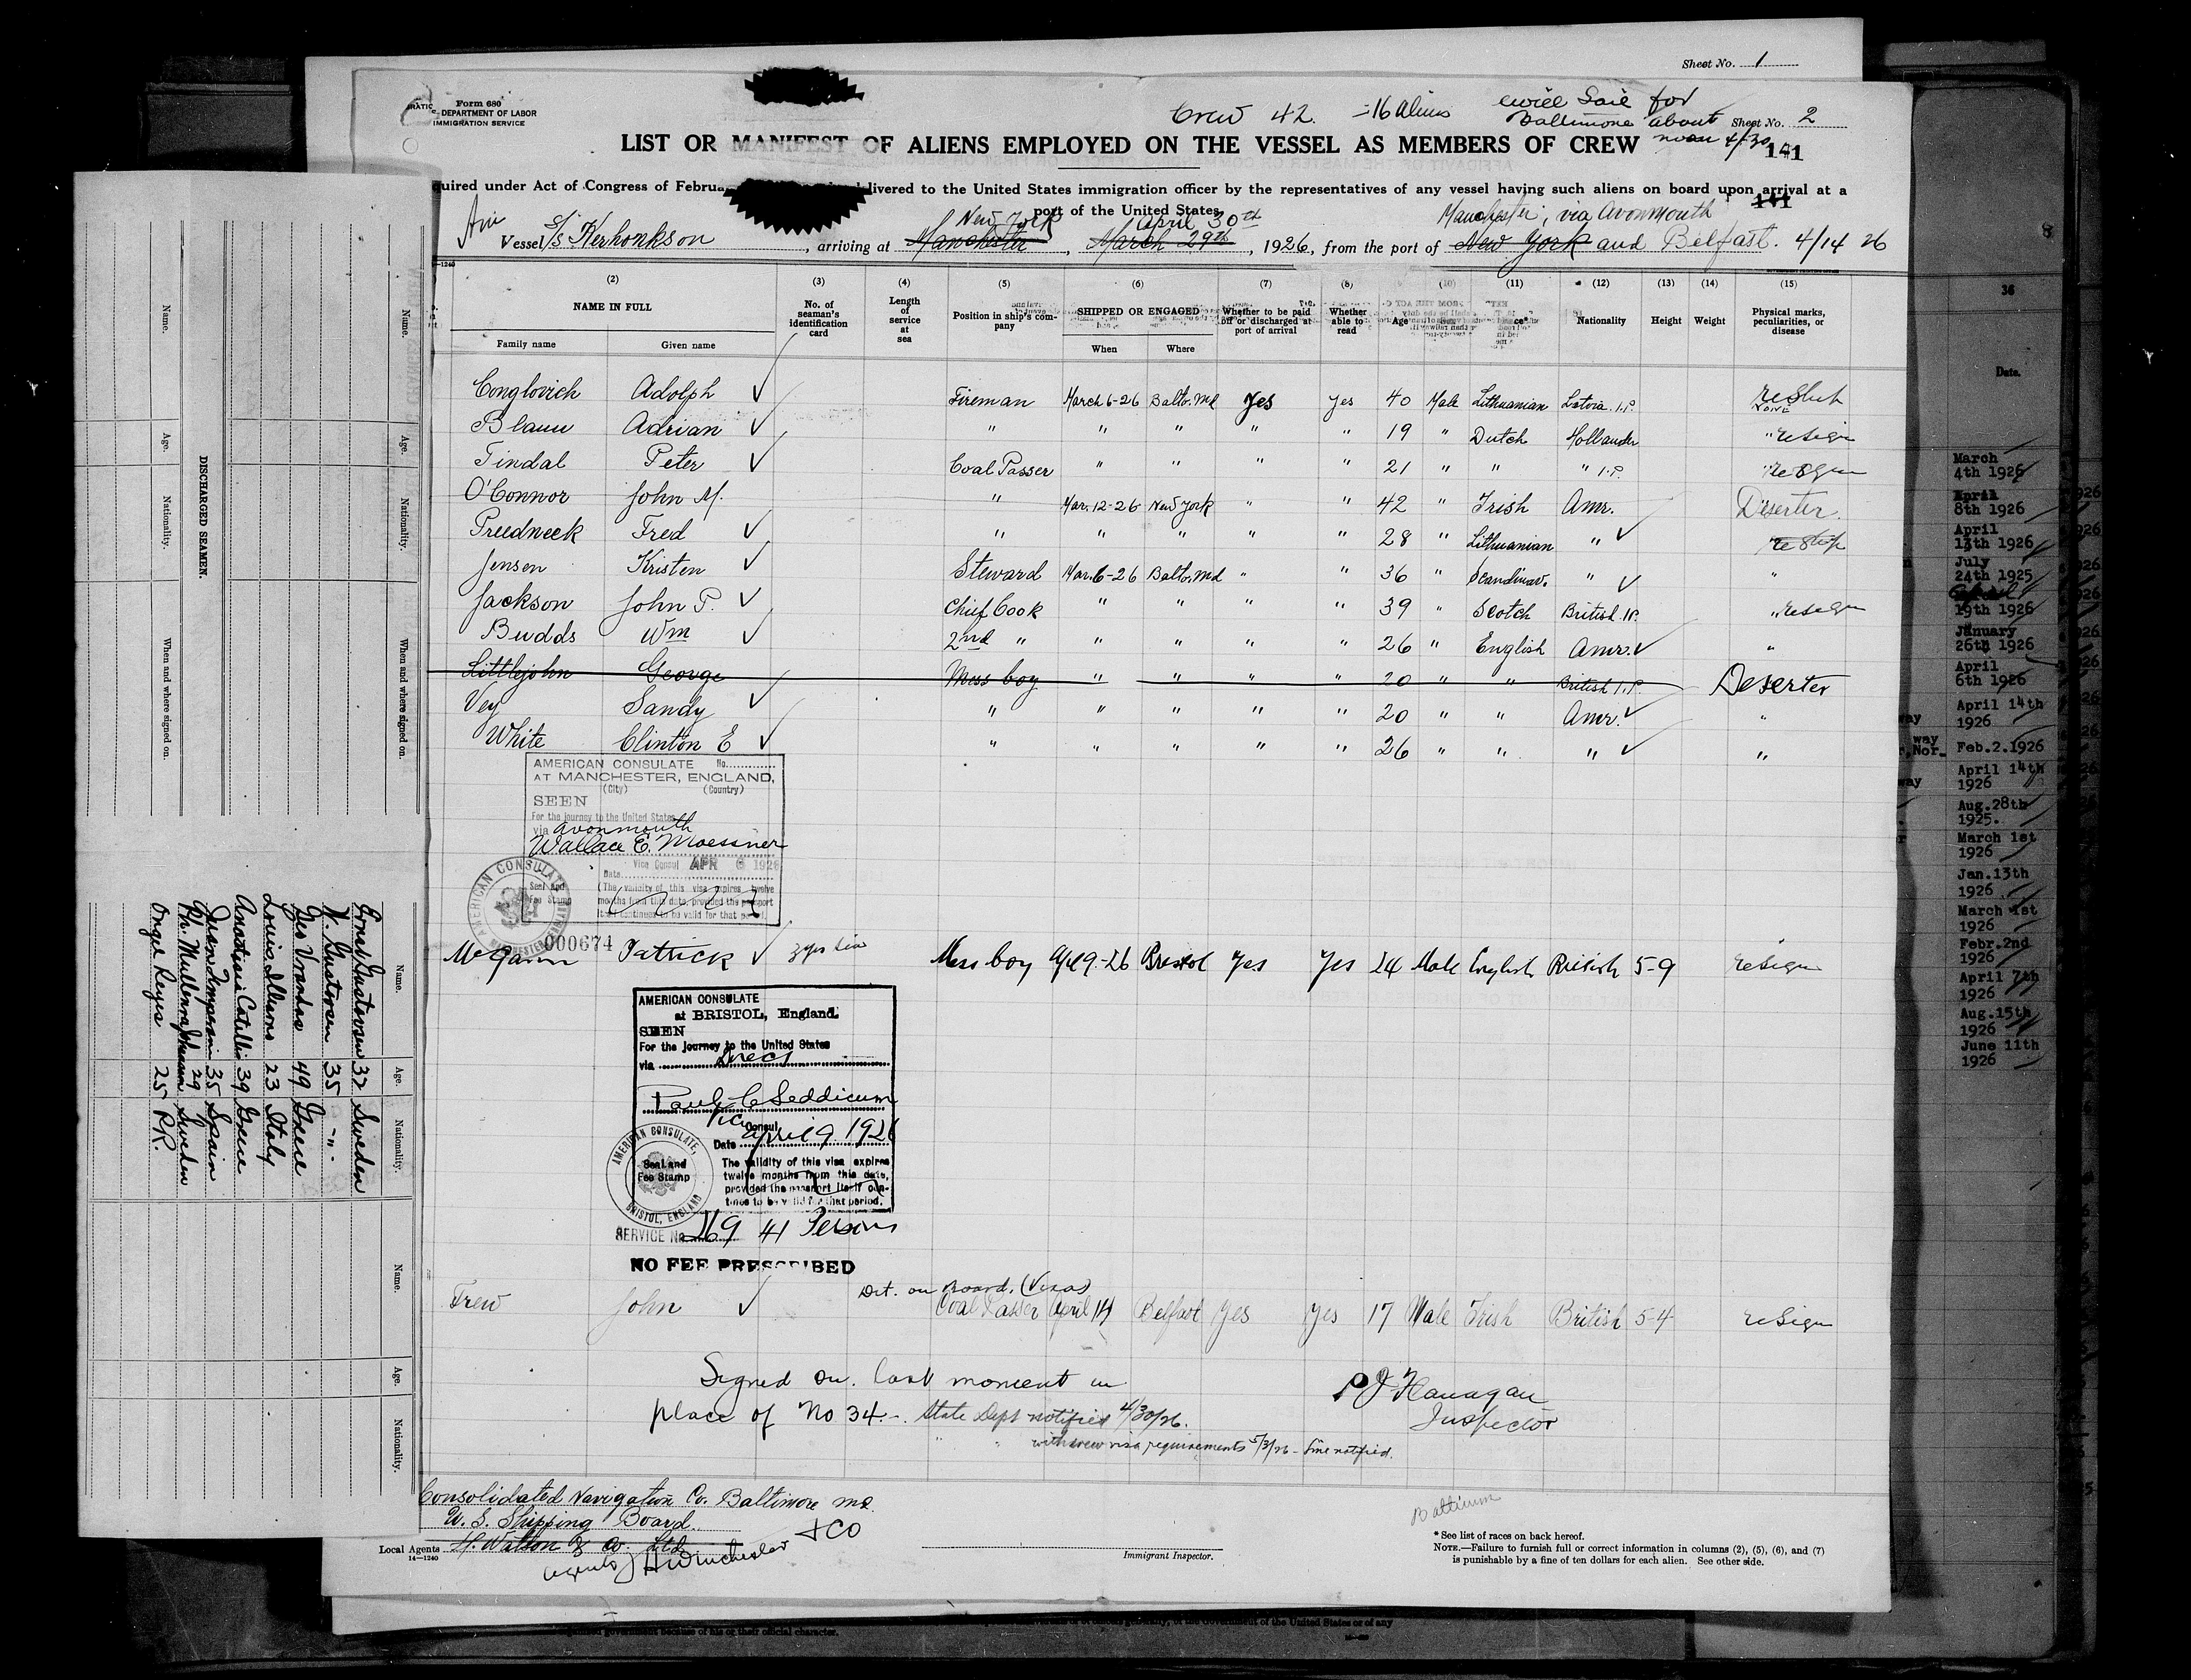 Sheet No. 1
Form 680
DEPARTMENT OF LABOR
IMMIGRATION SERVICE
Crew 42. -16 Aliens
will Sail for
Baltimore about
noon 4/30
Sheet No. 2
LIST OR MANIFEST OF ALIENS EMPLOYED ON THE VESSEL AS MEMBERS OF CREW
141
quired under Act of Congress of Februa livered to the United States immigration officer by the representatives of any vessel having such aliens on board upon arrival at a
port of the United States
141
New York April 30th Manchester, via Avonmouth
Vessel S/S Kerhonkson, arriving at Manchester, March 29th, 1926, from the port of New York and Belfast. 4/14 26
14-1240
(2) (3) (4) (5) (6) (7) (8) (10) (11) (12) (13) (14) (15)
NAME IN FULL No. of seaman's identification card Length of service at sea Position in ship's company SHIPPED OR ENGAGED Whether to be paid off or discharged at port of arrival Whether able to read Age Nationality Height Weight Physical marks, peculiarities, or disease
Family name Given name When Where
Conglovich Adolph ✓ Fireman March 6-26 Balto. Md Yes Yes 40 Male Lithuanian Latvia I.P. reShip
NONE
Blauw Adrian ✓ " " " " " 19 " Dutch Hollander " reSign
Tindal Peter ✓ Coal Passer " " " " 21 " " " I.P. " reSign
O'Connor John M. " Mar. 12-26 New York " " 42 " Irish Amr. Deserter.
Preedneck Fred ✓ " " " " " 28 " Lithuanian " ✓ reShip
Jensen Kristen ✓ Steward Mar. 6-26 Balto. Md " " 36 " Scandinav. " ✓ "
Jackson John P. ✓ Chief Cook " " " " 39 " Scotch British I.P. " reSign
Budds Wm ✓ 2nd " " " " " 26 " English Amr. ✓ "
Littlejohn George Mess boy " " " " 20 " " British I.P. Deserter
Vey Sandy ✓ " " " " " 20 " " Amr. ✓ "
White Clinton E ✓ " " " " " 26 " " " ✓ "
AMERICAN CONSULATE No.
AT MANCHESTER, ENGLAND,
(City) (Country)
SEEN
For the journey to the United States
via Avonmouth
Wallace E. Moessner
Vice Consul APR 6 1926
Date
(The validity of this visa expires twelve
months from this date, provided the passport
itself continues to be valid for that period.
Seal and
Fee Stamp
AMERICAN CONSULATE
000674
McGann Patrick ✓ 3 yrs Sea Mess boy Apl 9-26 Bristol Yes Yes 24 Male English British 5-9 reSign
AMERICAN CONSULATE
at BRISTOL, England.
SEEN
For the journey to the United States
via Direct
Vice Consul
Date April 9 1926
The validity of this visa expires
twelve months from this date,
provided the passport itself con-
tinues to be valid for that period.
AMERICAN CONSULATE,
Seal and
Fee Stamp
BRISTOL, ENGLAND
SERVICE No. 269 41 Persons
NO FEE PRESCRIBED
Det. on board. (Visas)
Trew John ✓ Coal Passer April 14 Belfast Yes Yes 17 Male Irish British 5-4 reSign
Signed on last moment in
place of No 34. - State Dept notified 4/30/26.
" " withdrew visa requirements 5/3/26 - Line notified.
P J Flanagan
Inspector
Consolidated Navigation Co. Baltimore Md.
U. S. Shipping Board.
Local Agents H. Watson & Co. Ltd
14-1240
agents J H Winchester & CO
Immigrant Inspector.
* See list of races on back hereof.
NOTE.—Failure to furnish full or correct information in columns (2), (5), (6), and (7)
is punishable by a fine of ten dollars for each alien. See other side.
DISCHARGED SEAMEN.
Name. Age. Nationality. When and where signed on.
Name. Age. Nationality. When and where signed on.
Name. Age. Nationality.
Name. Age. Nationality.
Ernst Gustavsen 32 Sweden
N. Gustavsen 35 - " -
Geo Vrondas 49 Greece
Louis 23 Italy
39 Greece
35 Spain
29 Sweden
Angel Reyes 25 P.R.
36
Date.
March
4th 1926
April
8th 1926
April
13th 1926
July
24th 1925
19th 1926
January
26th 1926
April
6th 1926
April 14th
1926
Feb.2.1926
April 14th
1926
Aug.28th
1925.
March 1st
1926
Jan.13th
1926.
March 1st
1926
Febr.2nd
1926
April 7th
1926
Aug.15th
1926
June 11th
1926